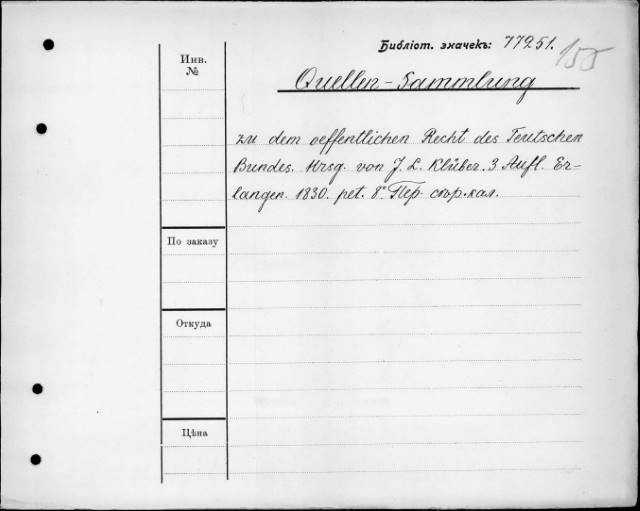 Библіот. значекъ: 77251. 155
Инв.
№
Quellen-Sammlung
zu dem oeffentlichen Recht des Teutschen
Bundes. Hrsg. von J. L. Klüber. 3 Aufl. Er-
langen. 1830. pet. 8° Пер. стор. кал.
По заказу
Откуда
Цѣна